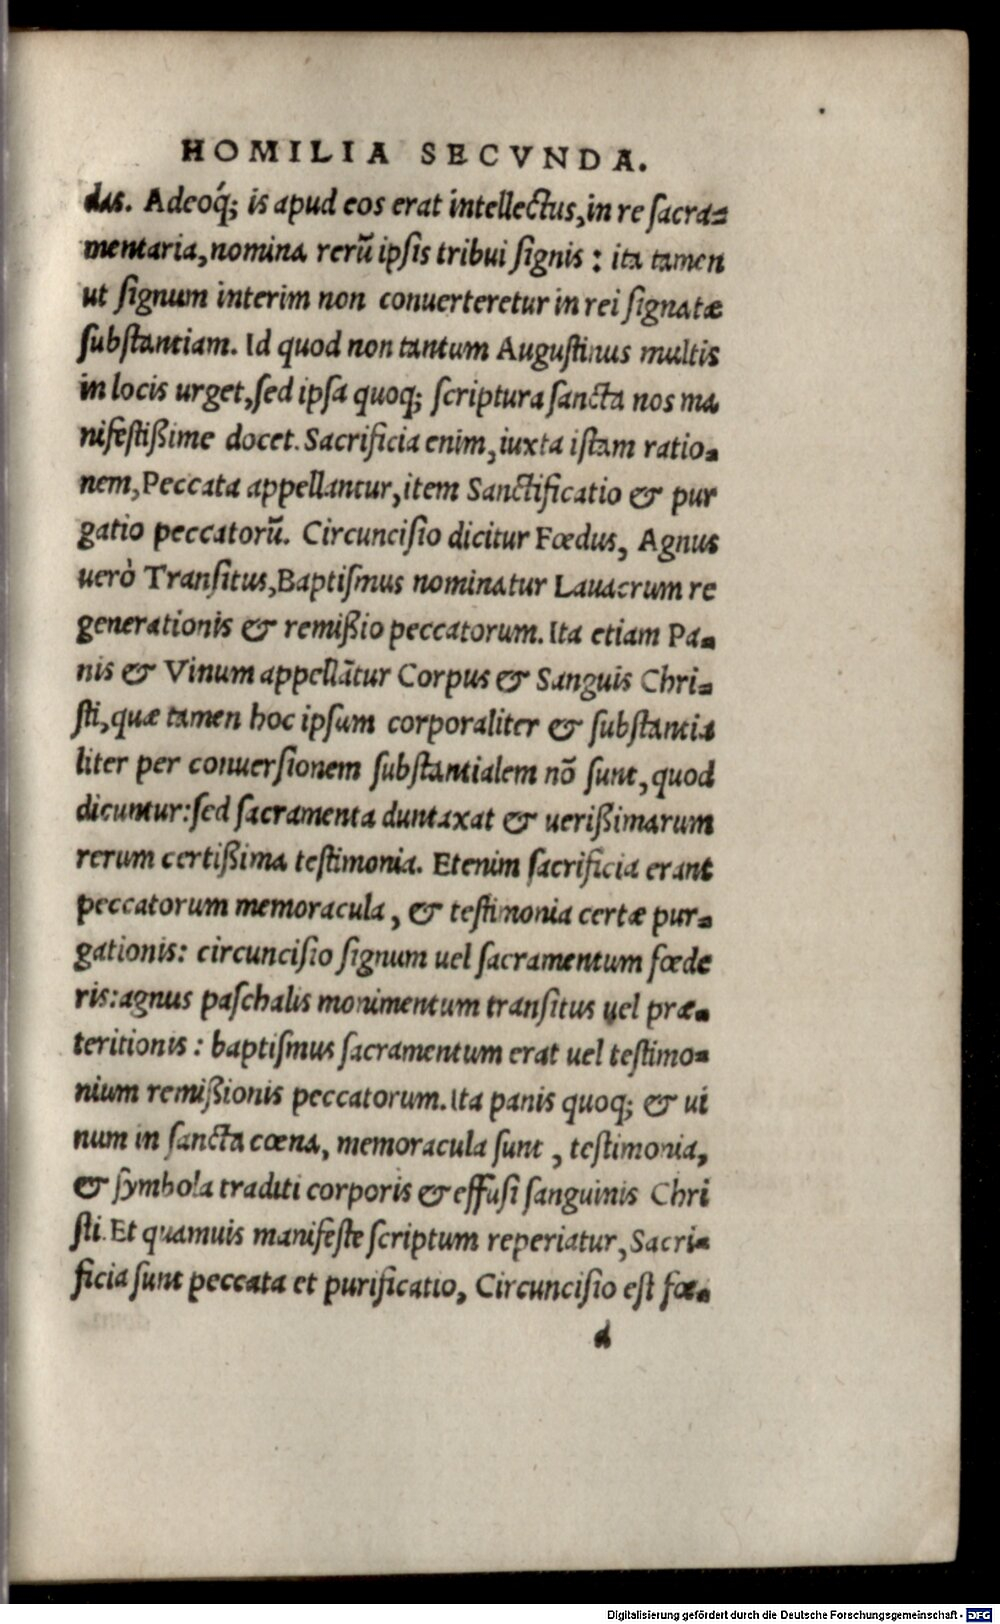 HOMILIA SECVNDA.
das. Adeoq́; is apud eos erat intellectus, in re sacra=
mentaria, nomina rerū ipsis tribui signis : ita tamen
ut signum interim non conuerteretur in rei signatæ
substantiam. Id quod non tantum Augustinus multis
in locis urget, sed ipsa quoq; scriptura sancta nos ma
nifestißime docet. Sacrificia enim, iuxta istam ratio=
nem, Peccata appellantur, item Sanctificatio & pur
gatio peccatorū. Circuncisio dicitur Fœdus, Agnus
uerò Transitus, Baptismus nominatur Lauacrum re
generationis & remißio peccatorum. Ita etiam Pa=
nis & Vinum appellātur Corpus & Sanguis Chri=
sti, quæ tamen hoc ipsum corporaliter & substantia
liter per conuersionem substantialem nō sunt, quod
dicuntur: sed sacramenta duntaxat & uerißimarum
rerum certißima testimonia. Etenim sacrificia erant
peccatorum memoracula, & testimonia certæ pur=
gationis: circuncisio signum uel sacramentum fœde
ris: agnus paschalis monimentum transitus uel præ=
teritionis : baptismus sacramentum erat uel testimo=
nium remißionis peccatorum. Ita panis quoq; & ui
num in sancta cœna, memoracula sunt , testimonia,
& symbola traditi corporis & effusi sanguinis Chri
sti. Et quamuis manifeste scriptum reperiatur, Sacri=
ficia sunt peccata et purificatio, Circuncisio est fœ=
d
Digitalisierung gefördert durch die Deutsche Forschungsgemeinschaft - DFG